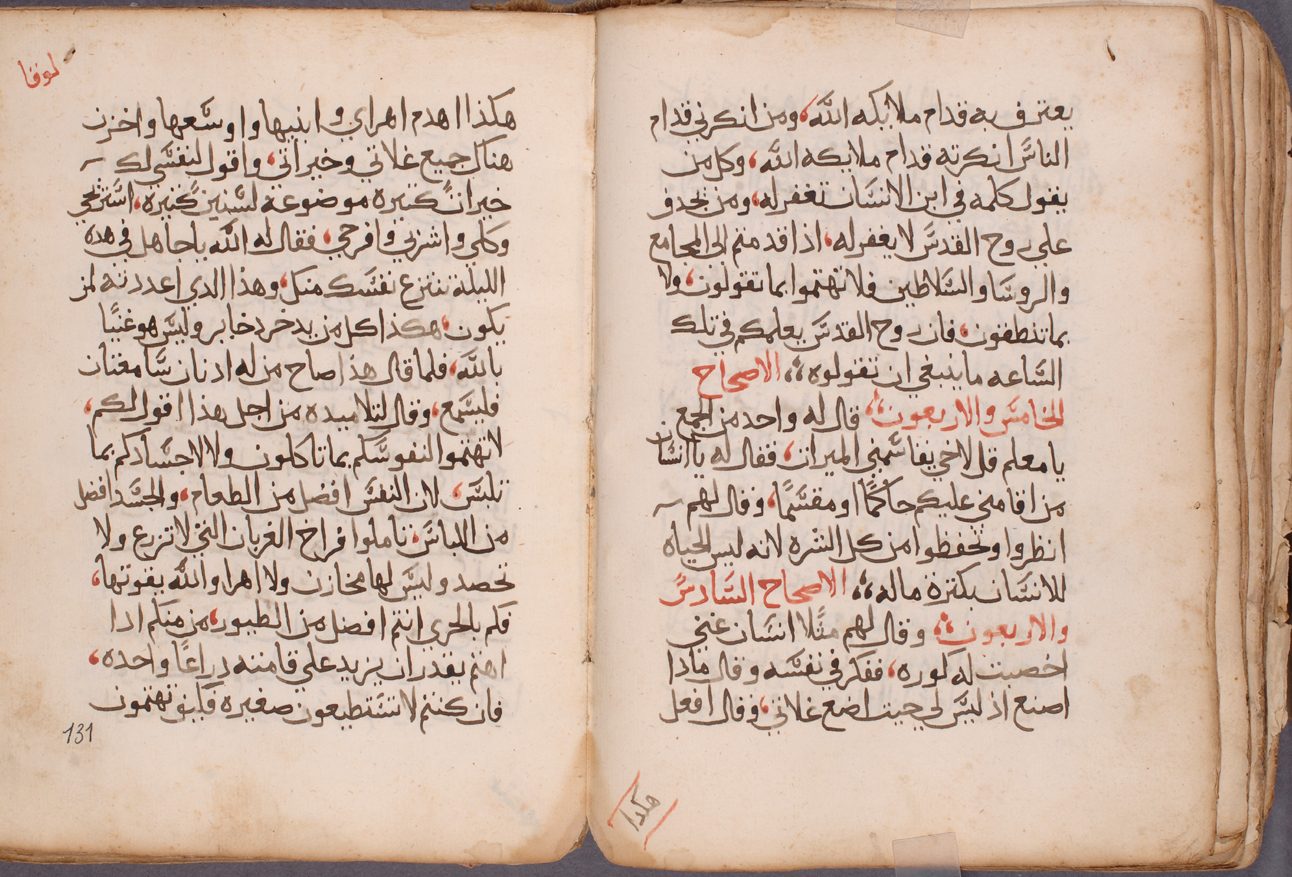 يعترف به قدام ملايكه الله، ومن انكرني قدام
الناس انكرته قدام ملايكه الله، وكل من
يقول كلمه في ابن الانسان تغفر له، ومن يجدف
علي روح القدس لا يغفر له، اذا قدمتم الي المجامع
والروسا والسلاطين فلا تهتموا بما تقولون، ولا
بما تنطقون، فان روح القدس يعلمكم في تلك
الساعه ما ينبغي ان تقولوه، الاصحاح
الخامس والاربعون، قال له واحد من الجمع
يا معلم قل لاخي يقاسمني الميراث، فقال له يا انسان
من اقامني عليكم حاكمًا او مقسمًا، وقال لهم
انظروا وتحفظوا من كل الشره لانه ليس الحياه
للانسان بكتره ماله، الاصحاح السادس
والاربعون، وقال لهم مثلًا انسان غني
اخصبت له كوره، ففكر في نفسه وقال مادا
اصنع اذ ليس لي حيث اضع غلاتي، وقال افعل
هكدا
لوقا
هكذا اهدم اهراي وابنيها واوسعها واخزن
هناك جميع غلاتي وخيراتي، واقول لنفسي لك
خيرات كثيره موضوعه لسنين كثيره، استريحي
وكلي واشربي وافرحي، فقال له الله يا جاهل في هده
الليلة تنتزع نفسك منك، وهذا الدي اعددته لمن
يكون، هكذا كل من يدخر دخاير وليس هو غنيًا
بالله، فلما قال هذا صاح من له ادنان سامعتان
فليسمع، وقال لتلاميده من اجل هذا اقول لكم،
لا تهتموا لنفوسكم بما تاكلون ولا لاجسادكم بما
تلبس، لان النفس افضل من الطعام، والجسد افضل
من اللباس، تاملوا فراخ الغربان التي لا تزرع ولا
تحصد وليس لها مخازن ولا اهرا والله يقوتها،
فكم بالحري انتم افضل من الطيور، من منكم ادا
اهتم يقدر ان يزيد علي قامته دراعًا واحده،
فان كنتم لا تستطيعون صغيره فكيف تهتمون
131